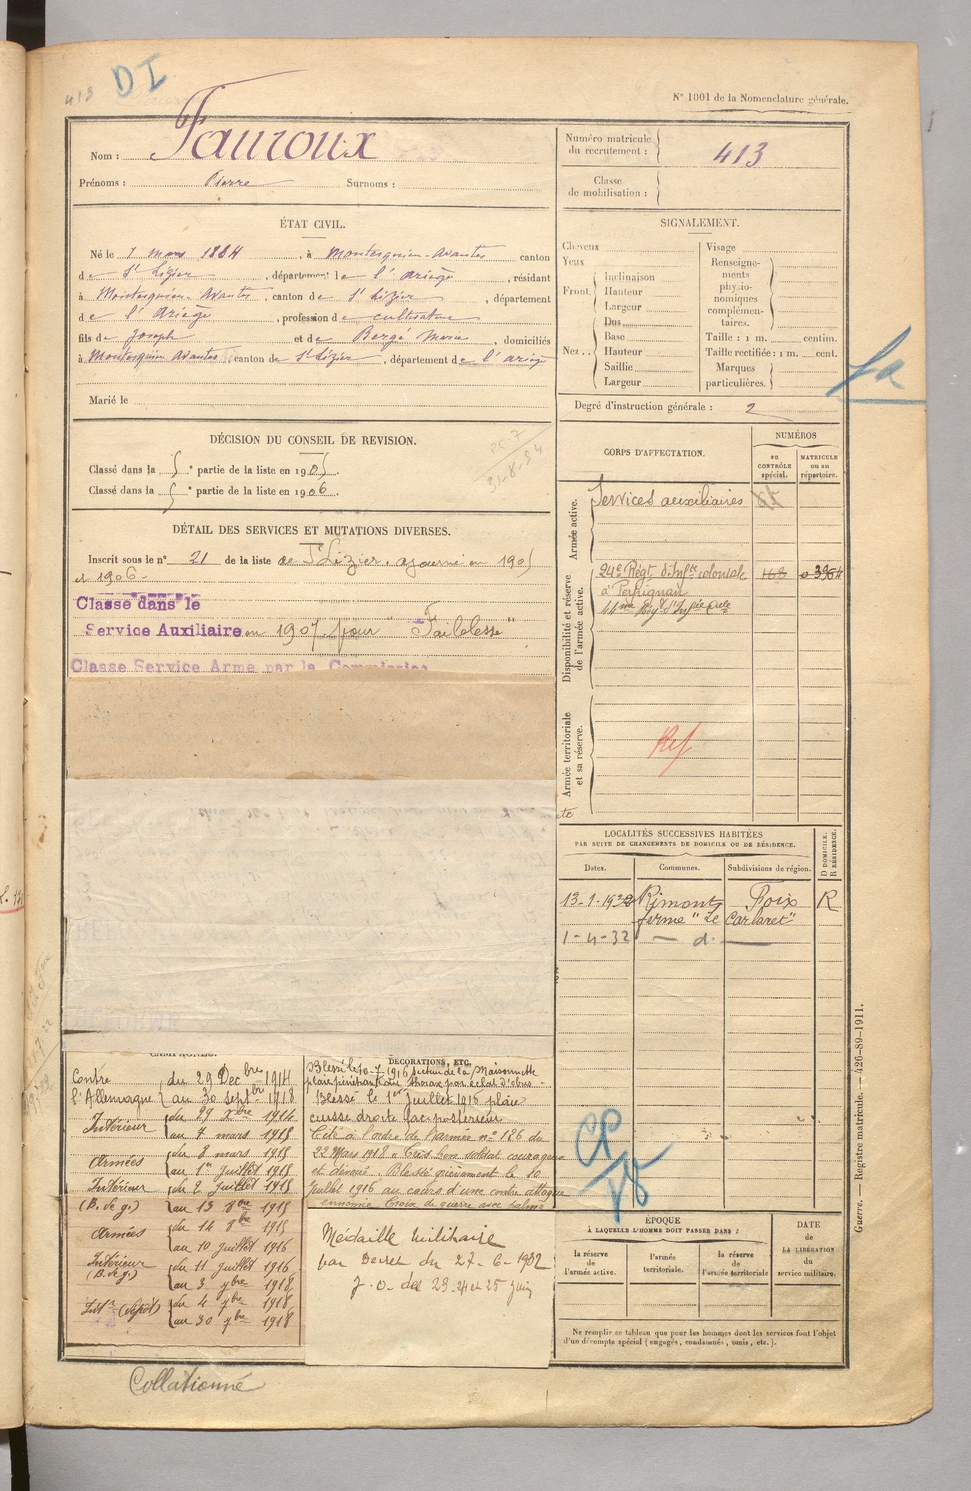 413
DI
N° 1001 de la Nomenclature générale.
Nom : Fauroux
Prénoms : Pierre Surnoms :
Numéro matricule du recrutement : 413
Classe de mobilisation :
ÉTAT CIVIL.
Né le 7 mars 1884, à Montesquieu-Avantès canton
de St Lizier, département de l'Ariège, résidant
à Montesquieu-Avantès, canton de St Lizier, département
de l'Ariège, profession de cultivateur
fils de Joseph et de Bergé Marie, domiciliés
à Montesquieu Avantès, canton de St Lizier, département de l'Ariège
Marié le
SIGNALEMENT.
Cheveux
Yeux
Front.
Inclinaison
Hauteur
Largeur
Nez..
Dos
Base
Hauteur
Saillie
Largeur
Visage
Renseigne-
ments
physio-
nomiques
complémen-
taires.
Taille : 1 m. centim.
Taille rectifiée : 1 m. cent.
Marques
particulières.
Degré d'instruction générale : 2
DÉCISION DU CONSEIL DE REVISION.
Classé dans la 5e partie de la liste en 1905.
Classé dans la 5e partie de la liste en 1906.
31.8.34
DÉTAIL DES SERVICES ET MUTATIONS DIVERSES.
Inscrit sous le n° 21 de la liste de St Lizier. ajourné en 1905
et 1906-
Classé dans le
Service Auxiliaire en 1907 pour "Faiblesse"
Classé Service Armé par la Commission
CORPS D'AFFECTATION.
NUMÉROS
au CONTRÔLE spécial.
MATRICULE ou au répertoire.
Armée active.
Services auxiliaires
Disponibilité et réserve de l'armée active.
24e Régt d'Infrie coloniale 168
à Perpignan
Armée territoriale et sa réserve.
Ref
LOCALITÉS SUCCESSIVES HABITÉES
PAR SUITE DE CHANGEMENTS DE DOMICILE OU DE RÉSIDENCE.
Dates. Communes. Subdivisions de région. D DOMICILE. R RÉSIDENCE.
13-1-1932 Rimont Foix R
ferme "Le Carbaret"
1-4-32 — d° —
CAMPAGNES.
Contre l'Allemagne
du 29 Decbre 1914
au 30 septbre 1918
Intérieur
du 29 Xbre 1914
au 7 mars 1915
Armées
du 8 mars 1915
au 1er Juillet 1915
Intérieur (B. de g.)
du 2 Juillet 1915
au 13 8bre 1915
Armées
du 14 8bre 1915
au 10 Juillet 1916
Intérieur (B. de g.)
du 11 Juillet 1916
au 3 7bre 1918
Intr (dépôt)
du 4 7bre 1918
au 30 7bre 1918
DÉCORATIONS, ETC.
Blessé le 10-7-1916 secteur de la Maisonnette
plaie pénétrante du thorax par éclat d'obus -
Blessé le 1er Juillet 1915 plaie
cuisse droite face postérieure
Cité à l'ordre de l'armée n° 126 du
22 Mars 1918 "Très bon soldat courageux
et dévoué. Blessé grièvement le 10
Juillet 1916 au cours d'une contre attaque
ennemie. Croix de guerre avec palme
Médaille Militaire
par Decret du 27-6-1932
J. O. du 23. 24 et 25 Juin
ÉPOQUE
À LAQUELLE L'HOMME DOIT PASSER DANS :
la réserve de l'armée active.
l'armée territoriale.
la réserve de l'armée territoriale
DATE
de
LA LIBÉRATION
du
service militaire.
Ne remplir ce tableau que pour les hommes dont les services font l'objet
d'un décompte spécial (engagés, condamnés, omis, etc.).
Guerre. — Registre matricule. — 426-89-1911.
Collationné